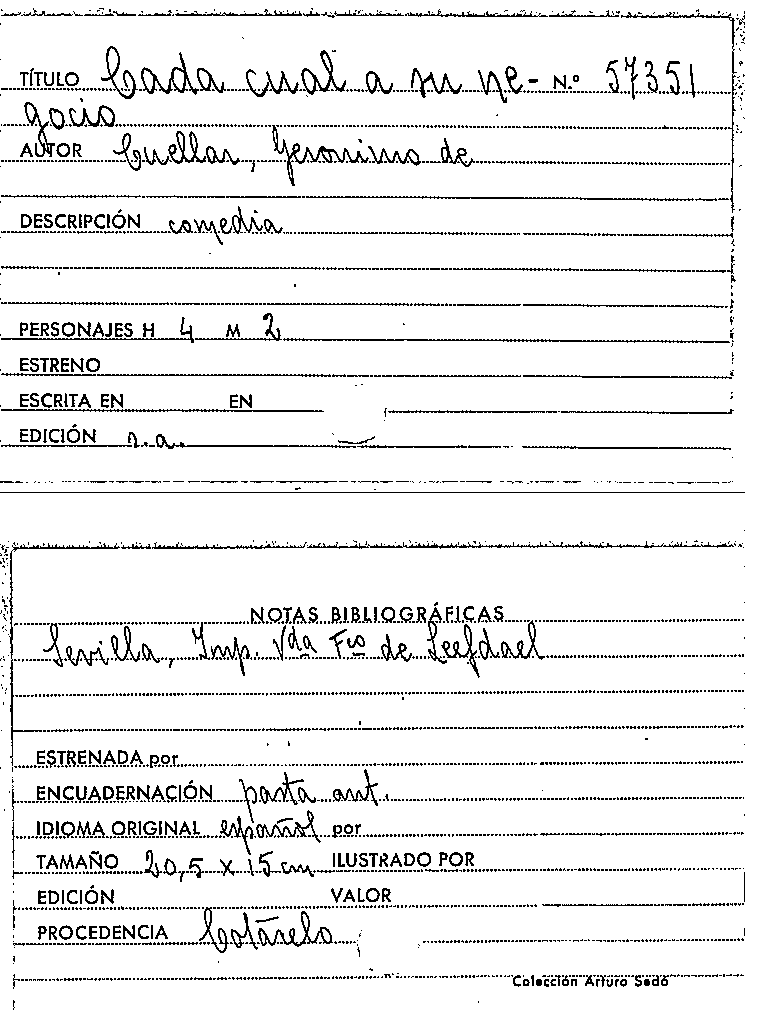 TÍTULO Cada cual a su ne- N.º 57351
gocio
AUTOR Cuellar, Geronimo de
DESCRIPCIÓN comedia
PERSONAJES H 4 M 2
ESTRENO
ESCRITA EN EN
EDICIÓN s.a.
NOTAS BIBLIOGRÁFICAS
Sevilla, Imp. Vda Fco de Leefdael
ESTRENADA por
ENCUADERNACIÓN pasta ant.
IDIOMA ORIGINAL español por
TAMAÑO 20,5 x 15 cm ILUSTRADO POR
EDICIÓN VALOR
PROCEDENCIA Cotarelo
Colección Arturo Sedó